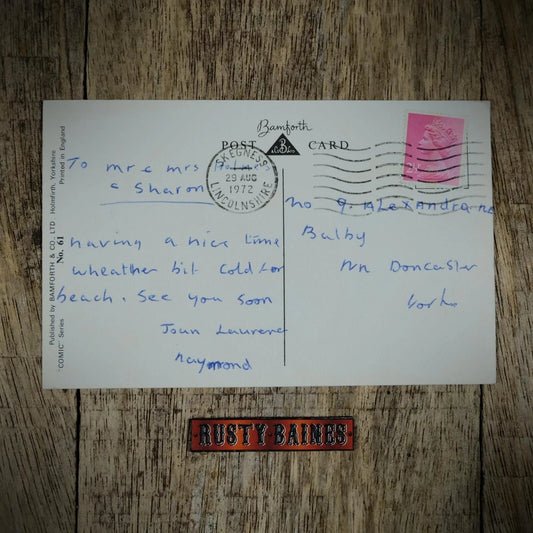 Bamforth
POST CARD
B
& CO LTD
SKEGNESS
29 AUG
1972
LINCOLNSHIRE
To mr & mrs
& Sharon
having a nice time
wheather bit cold for
beach. See you soon
Joan Laurence
Raymond
No 9. ALEXANDRA RD
Balby
Nn Doncaster
Yorks
Published by BAMFORTH & CO. LTD Holmfirth, Yorkshire
"COMIC" Series No. 61 Printed in England
RUSTY BAINES